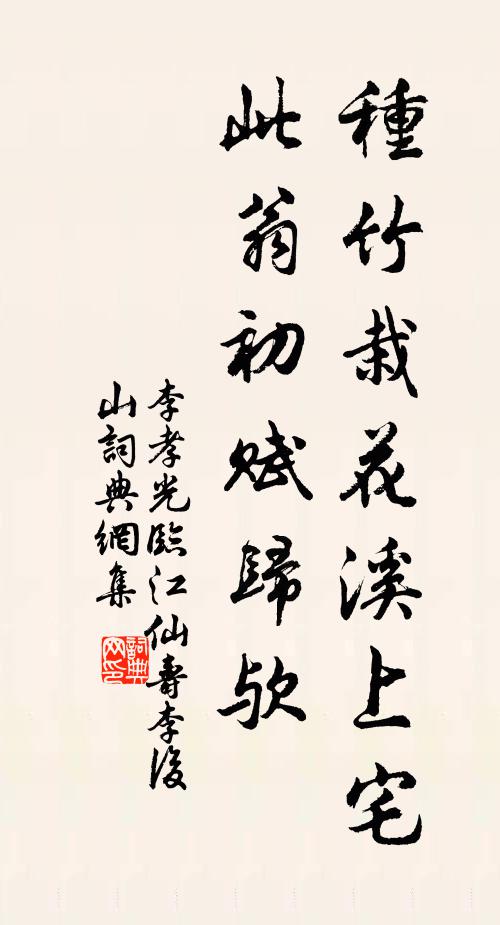 種竹栽花溪上宅
此翁初賦歸歟
李孝光臨江仙壽李後
山詞典網集
詞典網印